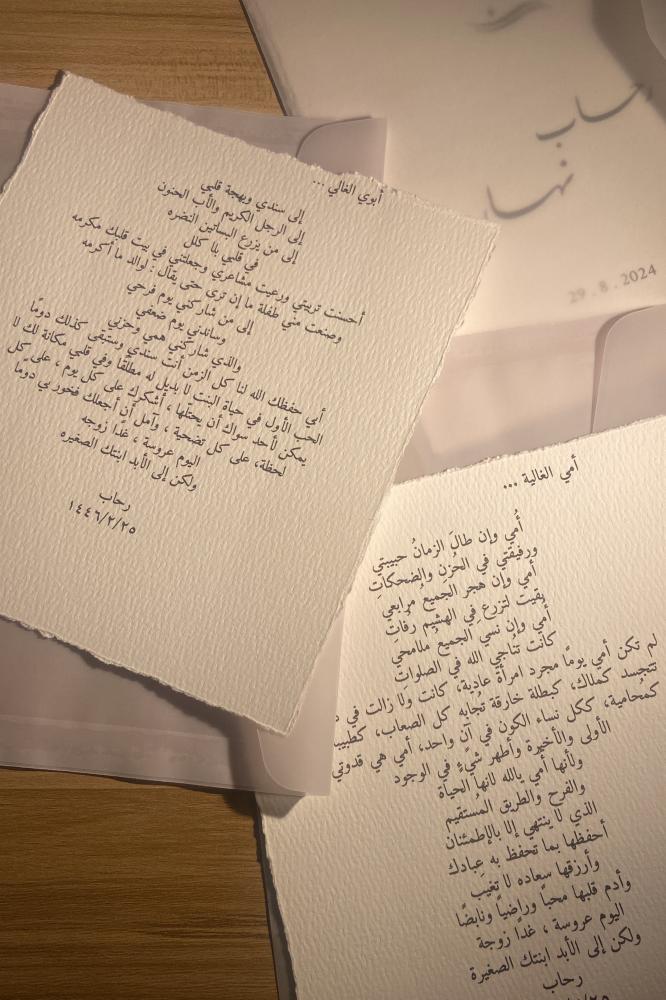 رحاب
نهار
29 . 8 . 2024
أبوي الغالي ...
إلى سندي وبهجة قلبي
إلى الرجل الكريم والأب الحنون
إلى من يزرع البساتين النضره
في قلبي بلا كلل
أحسنت تربيتي ورعيت مشاعري وجعلتني في بيت قلبك مكرمه
وصنعت مني طفلة ما إن ترى حتى يقال : لوالد ما أكرمه
إلى من شاركني يوم فرحي
وساندني يوم ضعفي
والذي شاركني همي وحزني
أبي حفظك الله لنا كل الزمن أنت سندي وستبقى كذلك دومًا
الحب الأول في حياة البنت لا بديل له مطلقًا وفي قلبي مكانة لك لا
يمكن لأحد سواك أن يحتلها ، أشكرك على كل يوم ، على كل
لحظة، على كل تضحية ، وآمل أن أجعلك فخور بي دومًا
اليوم عروسة ، غدًا زوجه
ولكن إلى الأبد ابنتك الصغيره
رحاب
١٤٤٦/٢/٢٥
أمي الغالية ...
أُمي وإن طالَ الزمانُ حبيبتي
ورفيقتي في الحُزنِ والضحكاتِ
أمي وإن هجر الجميعُ مرابعي
بقيت لتزرع في الهشيم رفُاتِ
أمي وإن نسيَ الجميعُ ملامحي
كانت تنُاجي الله في الصلواتِ
لم تكن أمي يومًا مجرد امرأة عادية، كانت ولا زالت في
تتجسد كملاك، كبطلة خارقة تجُابه كل الصعاب، كطبيبة
كمُحامية، ككل نساء الكون في آنٍ واحد، أمي هي قدوتي
الأولى والأخيرة وأطهر شيءٍ في الوجود
ولأنها أمي يالله لأنها الحياة
والفرح والطريق المُستقيم
الذي لا ينتهي إلا بالإطمئنان
أحفظها بما تحفظ به عبادك
وأرزقها سعاده لا تغيب
وأدم قلبها محباً وراضياً ونابضًا
اليوم عروسة ، غدًا زوجة
ولكن إلى الأبد ابنتك الصغيرة
رحاب